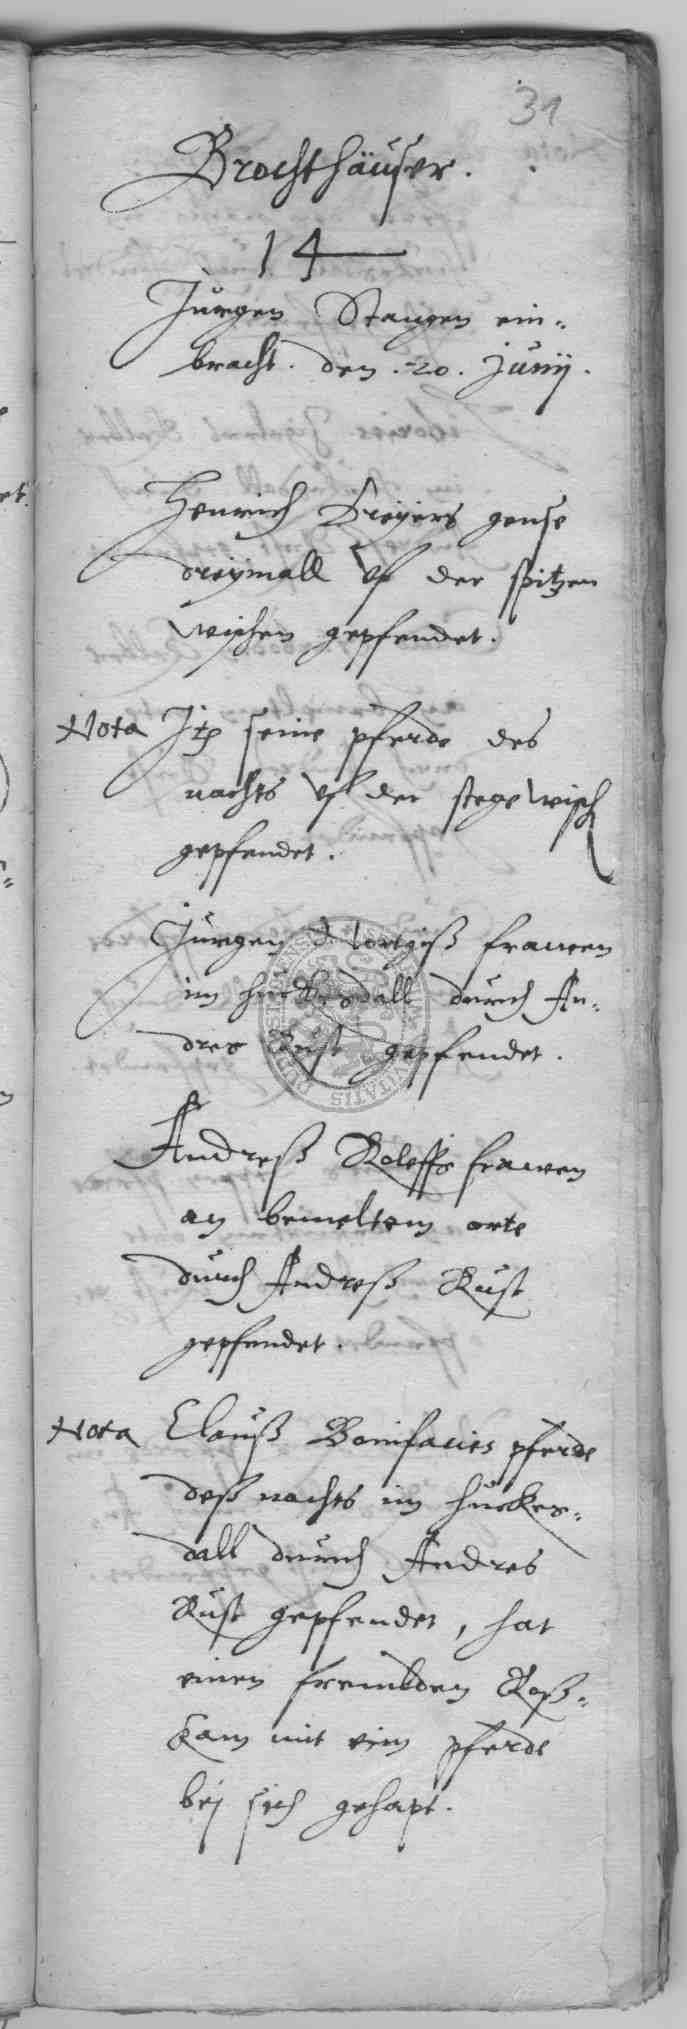 31
Brochthäuser.
14
Jürgen Stangen ein=
bracht. den. 20. Junij.
Henrich Dreyers gense
dreymall vf der spitzen
wischen gepfendet.
Nota Itē seine pferde des
nachts vf der stege wisch
gepfendet.
Jürgen frawen
im Huckesdall durch An=
dres Rust gepfendet.
Andreß Roleffs frawen
an bemeltem orte
durch Andreß Rust
gepfendet.
Nota Clauß Bonifacies pferde
deß nachts im Huckes=
dall durch Andres
Rust gepfendet, hat
einen frembden Roß=
kam mit eim pferde
bej sich gehapt.